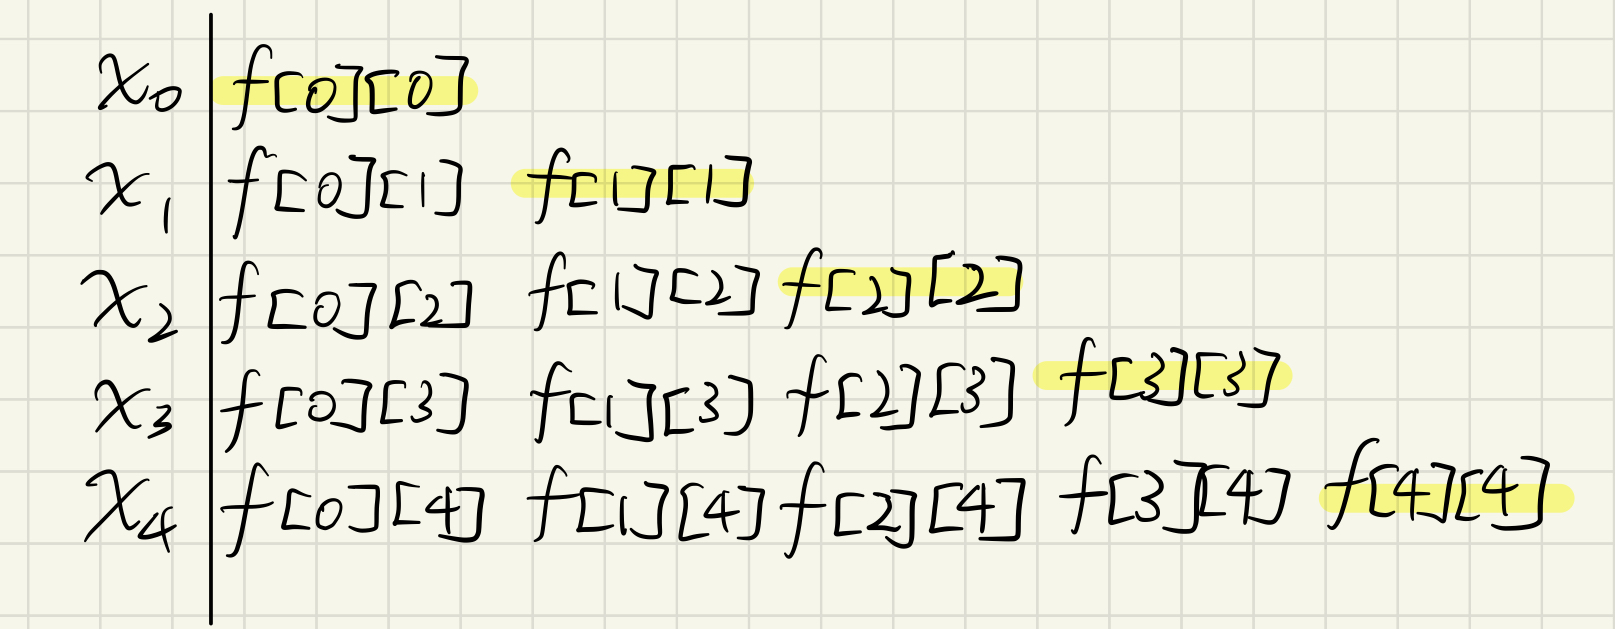 x₀ f[0][0]
x₁ f[0][1] f[1][1]
x₂ f[0][2] f[1][2] f[2][2]
x₃ f[0][3] f[1][3] f[2][3] f[3][3]
x₄ f[0][4] f[1][4] f[2][4] f[3][4] f[4][4]